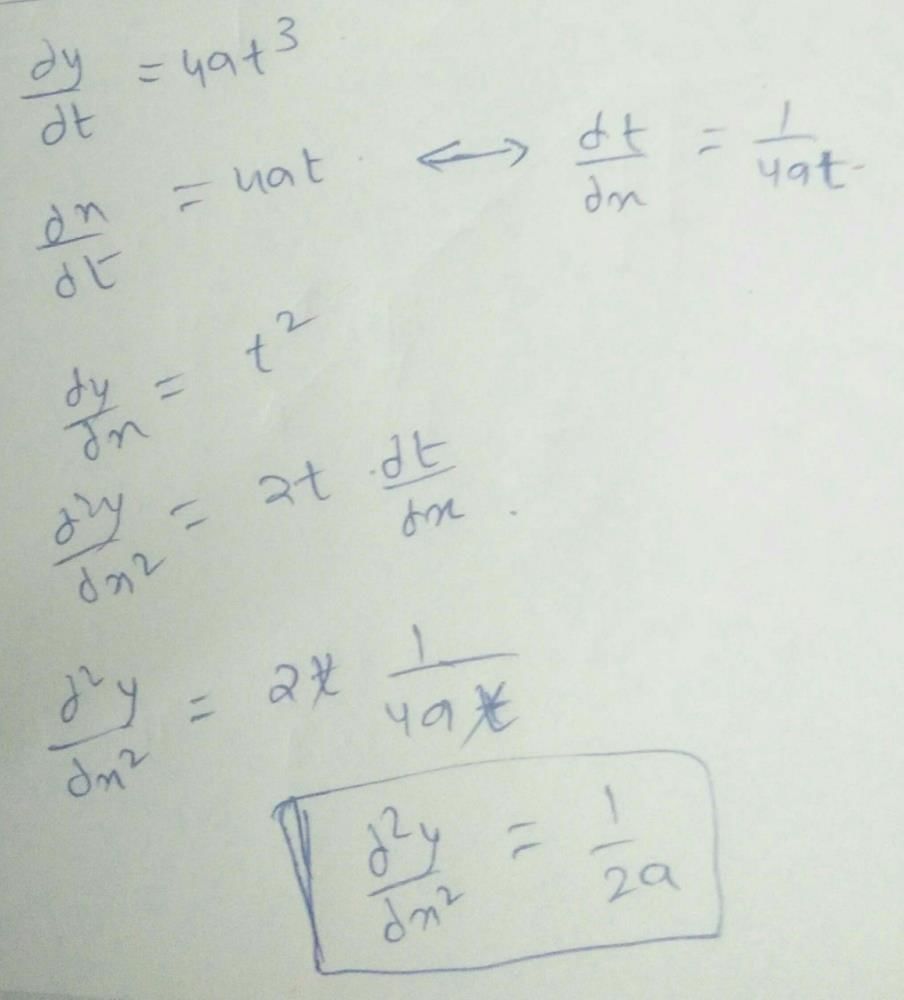 dy/dt = 4at³
dx/dt = 4at ⟷ dt/dx = 1/4at
dy/dx = t²
d²y/dx² = 2t · dt/dx
d²y/dx² = 2t 1/4at
d²y/dx² = 1/2a